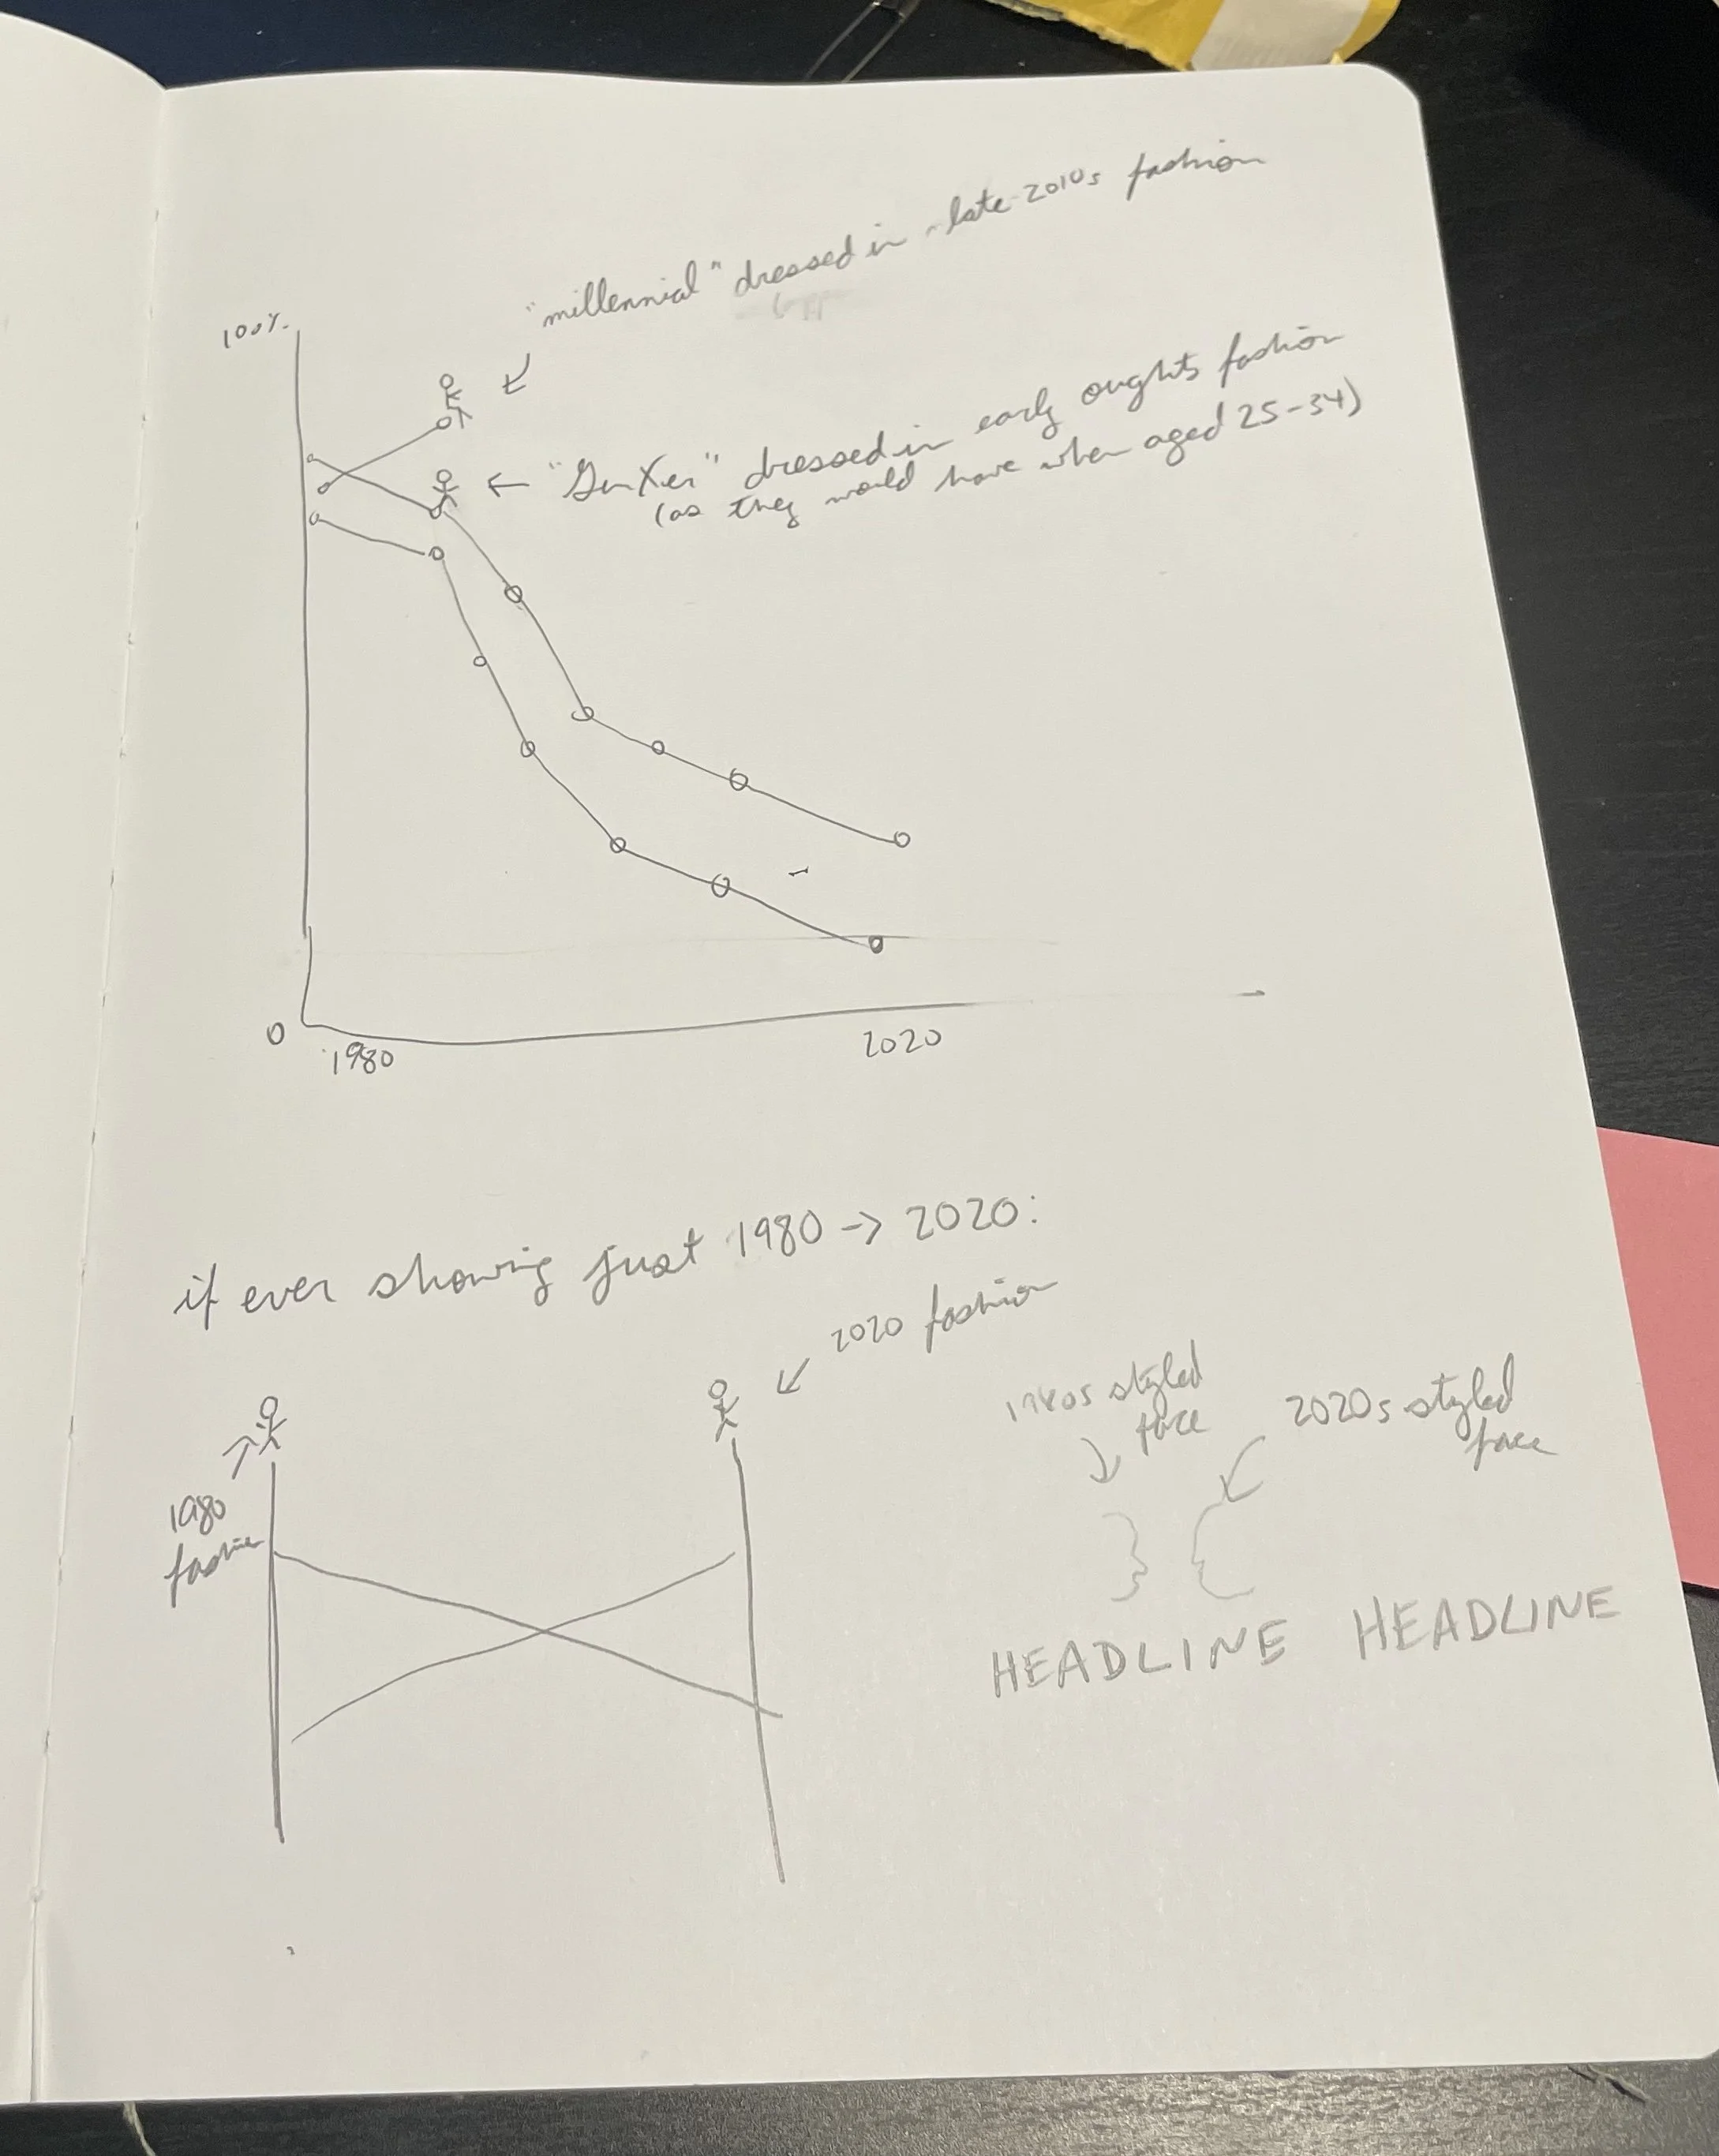 "millennial" dressed in late 2010s fashion
100%
← "GenXer" dressed in early oughts fashion
(as they would have when aged 25-34)
0
1980
2020
if ever showing just 1980 → 2020:
2020 fashion
1980
fashion
1980s styled
face
2020s styled
face
HEADLINE HEADLINE